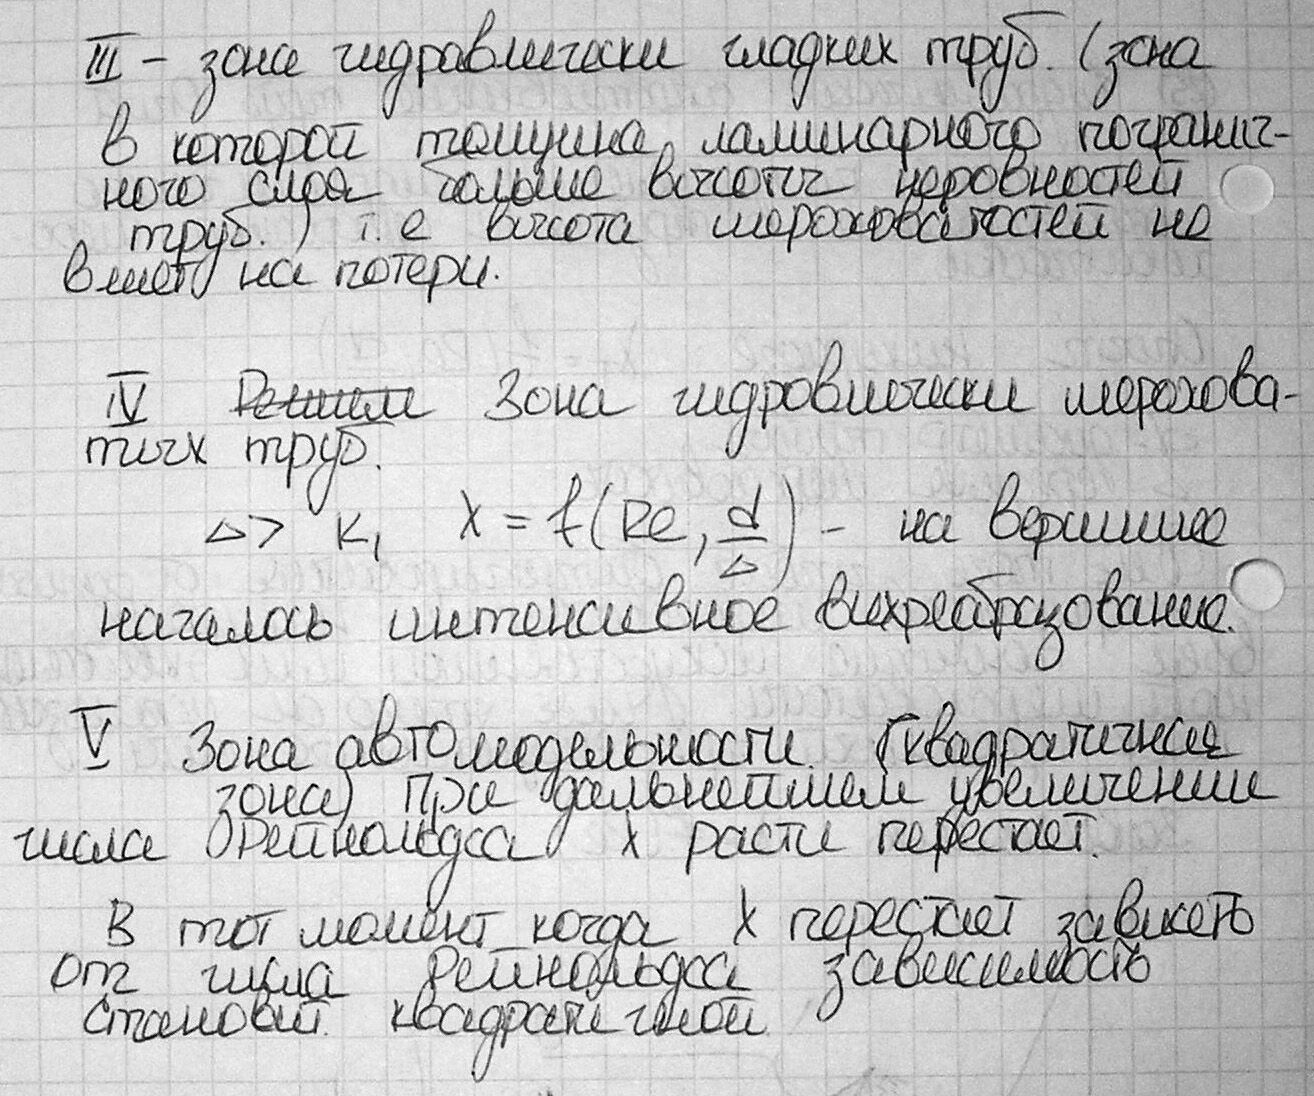 III – зона гидравлически гладких труб. (зона
в которой толщина ламинарного погранич-
ного слоя больше высоты неровностей
труб.) т.е высота шероховатостей не
влияет на потери.
IV Режим Зона гидровлически шерохова-
тых труб.
Δ > K₁ λ = f(Re, d/Δ) – на вершине
началось интенсивное вихреобразование.
V Зона автомодельности. (квадратичная
зона) При дальнейшем увеличении
числа Рейнольдса λ расти перестает.
В тот момент когда λ перестает зависеть
от числа Рейнольдса зависимость
становит. квадратичной